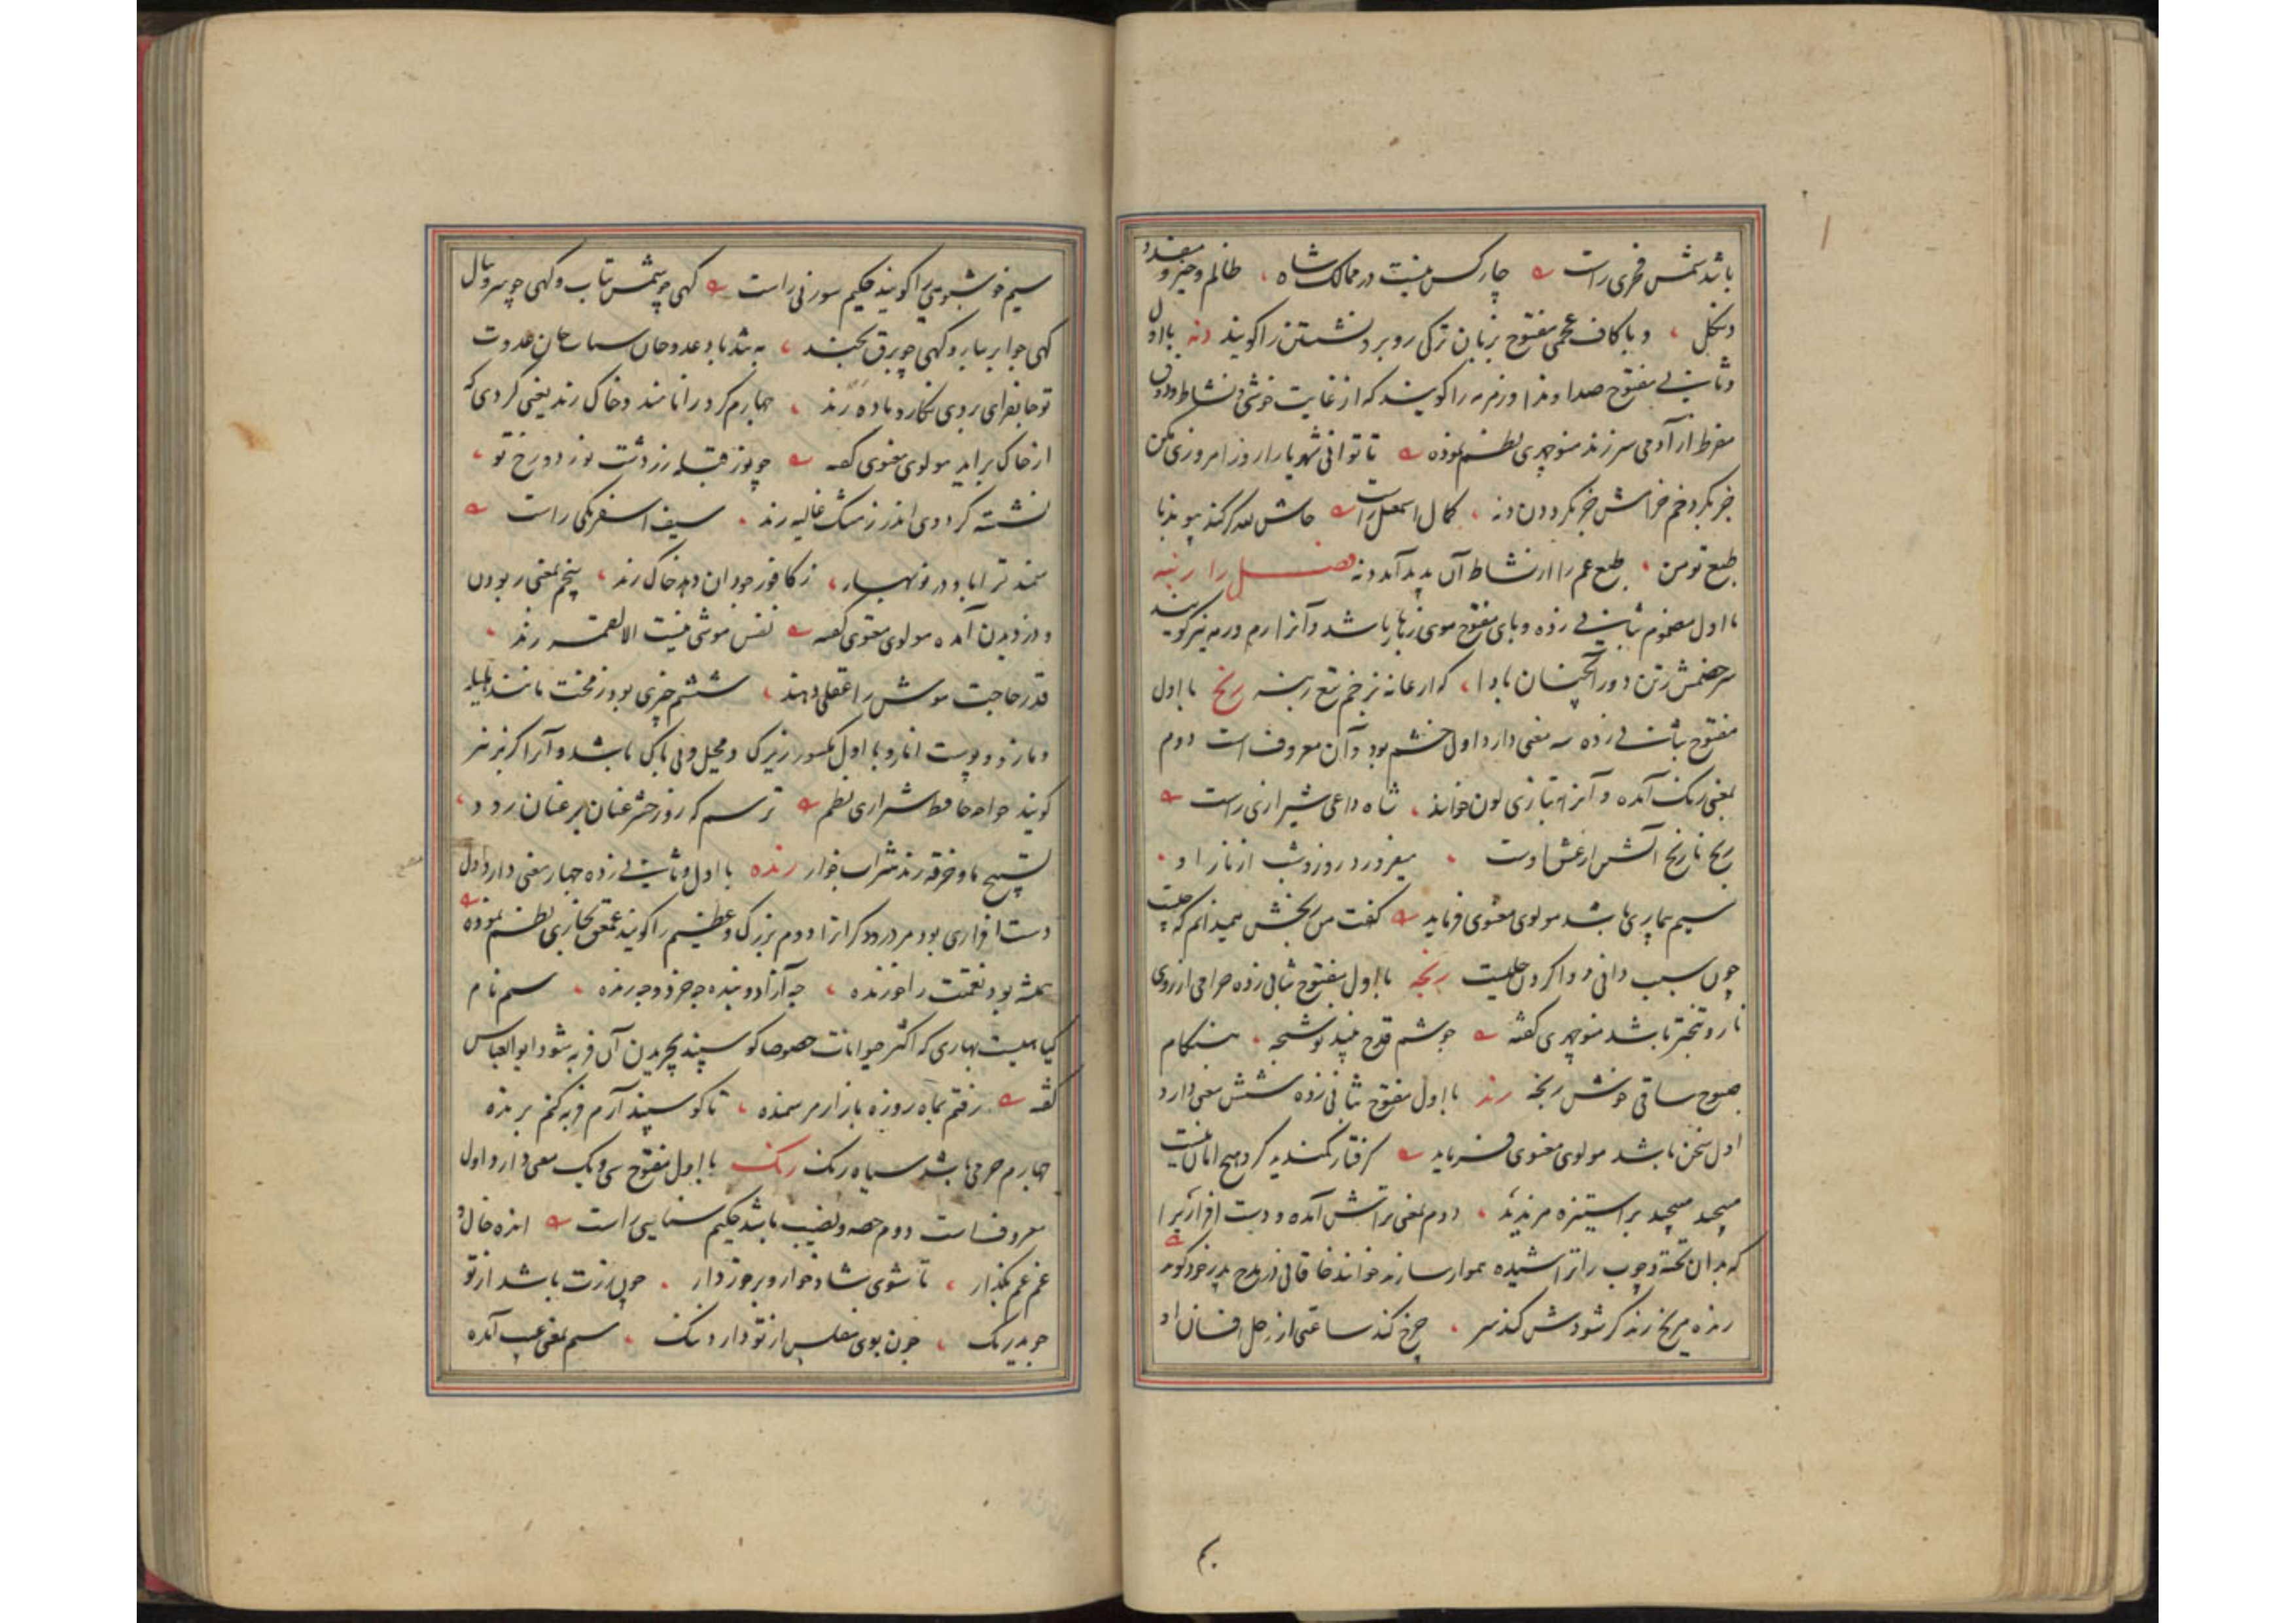 باشد شمس فخری راست چار کس نیست در ممالک شاه ظالم و خیره و مفسد و
دنگل و با کاف عجمی مفتوح بزبان ترکی روبرو نشستن را گویند دنه با اول
و ثانی مفتوح صدا و ندا و زمزمه را گویند که از غایت خوشی و نشاط و ذوق
مفرط از آدمی سر زند منوچهری نظم نموده تا توانی شهریارا روز امروزی مکن
جز بگرد خم خرامش جز بگرد دن دنه کمال اسمعیل راست حاش لله گر کند پیوند با
طبع تو من طبع غم را از نشاط آن پدید آید دنه فصل را رنبه
با اول مضموم بثانی زده و بای مفتوح موی زهار باشد و آنرا رم و رمه نیز گویند
سر خصمش ز تن دور آنچنان بادا که از عانه بزخم تیغ رنبه رنج با اول
مفتوح بثانی زده سه معنی دارد اول خشم بود و آن معروف است دوم
بمعنی رنگ آمده و آنرا بتازی لون خوانند شاه داعی شیرازی راست
رنج نارنج آتش از عشق اوست میفروزد روز و شب از ناز او
سیم بیماری باشد مولوی معنوی فرماید گفت من رنجش همیدانم که چیست
چون سبب دانی دوا کردن جلیست رنجه با اول مفتوح ثانی زده خرامی از روی
ناز و تبختر باشد منوچهری گفته جوشم قدح نبید نوشنجه هنگام
صبوح ساقی خوش رنجه رند با اول مفتوح ثانی زده شش معنی دارد
اول سخن باشد مولوی معنوی فرماید گرفتار کمندید کز و هیچ امان نیست
مپیچید مپیچید بر استیزه مرندید دوم بمعنی تراشش آمده و دست افزاریرا
که بدان تخته و چوب را تراشیده هموار سازند خوانند خاقانی در مدح پدر خود گوید
رنده مریخ رند گر شودش کند سر چرخ کند ساعتی از زحل افسان او
سیم خوشبویی را گویند حکیم سوزنی راست گهی چو شمس بتاب و گهی چو سرو ببال
گهی چو ابر ببار و گهی چو برق بخند
تو جانفزای بروی نگار و باده رند چهارم گرد را نامند و خاک رند یعنی گردی که
از خاک برآید مولوی معنوی گفته چو نور قبله زردشت نور دو رخ تو
نشسته گرد وی اندر ز مشک غالیه رند سیف اسفرنگی راست
سمند ترا باد در نوبهار ز کافور جودان دهد خاک رند پنجم بمعنی ربودن
و دزدیدن آمده مولوی معنوی گفته نفس موشی نیست الا لقمه رند
قدر حاجت موش را عقلی دهند ششم چیزی بود زمخت مانند هلیله
و مازو و پوست انار و با اول مکسور زیرک و محیل و بی باک باشد و آنرا گربز نیز
گویند خواجه حافظ شیرازی نظم ترسم که روز حشر عنان بر عنان رود
تسبیح ما و خرقه رند شراب خوار رنده با اول و ثانی زده چهار معنی دارد اول
دست افزاری بود مر درودگر انرا دوم بزرگ و عظیم را گویند عمعق بخاری نظم نموده
همیشه بود نعمتت را خورنده چه آزاد و بنده چه خرد و چه رنده سیم نام
گیاهیست بهاری که اکثر حیوانات خصوصا گوسپند بچریدن آن فربه شود ابوالعباس
گفته رفتم بماه روزه ببازار مرسمنده تا گوسپند آرم فربه کنم برنده
چهارم چرمی باشد سیاه رنگ رنگ با اول مفتوح سی و یک معنی دارد اول
معروفست دوم حصه و نصیب باشد حکیم سنایی راست انده خال و
غم عم بگذار تا شوی شاد خوار و برخوردار چون نزت باشد از تو
جوید رنگ چون بوی مفلس از تو دارد ننگ سیم بمعنی عیب آمده